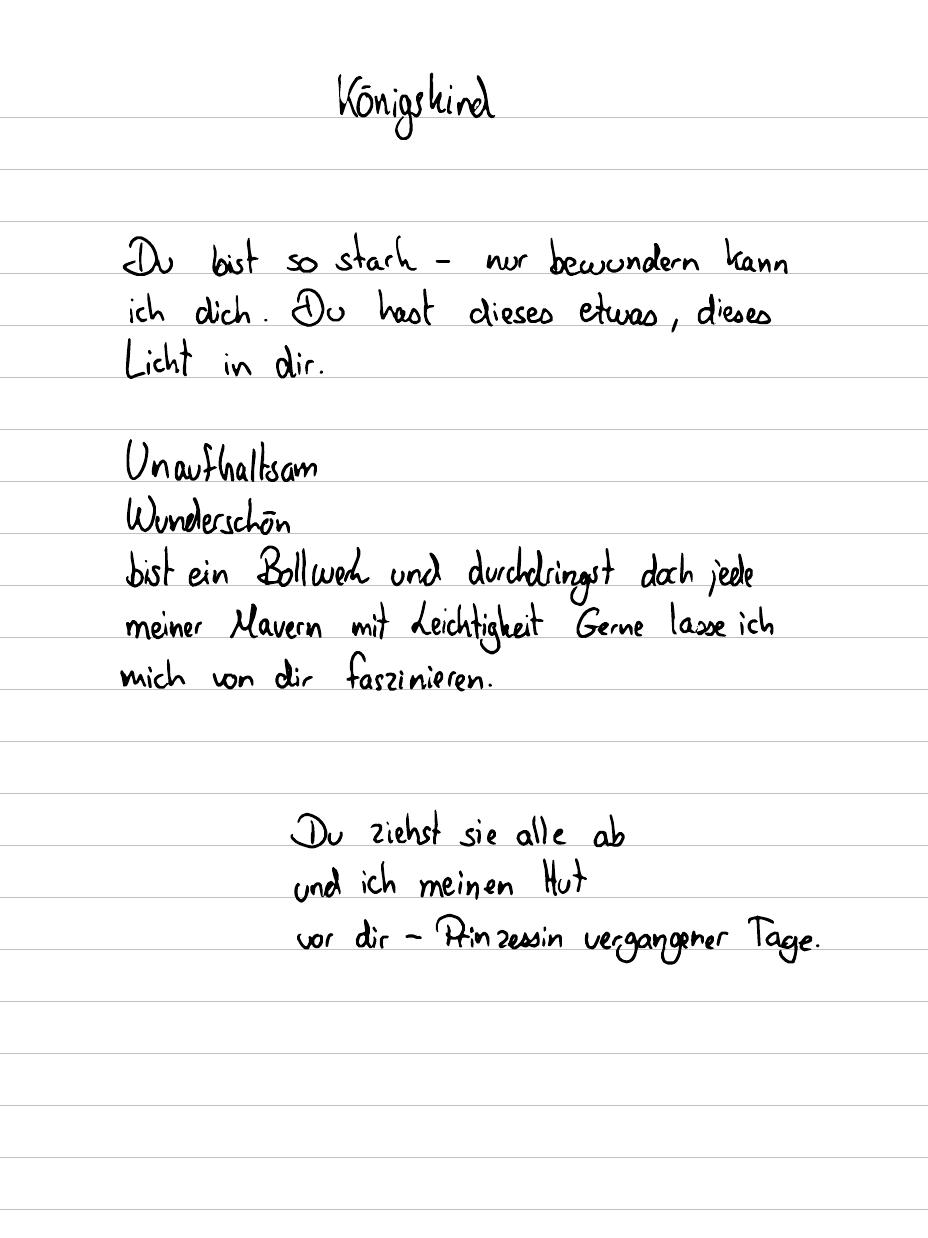 Königskind
Du bist so stark - nur bewundern kann
ich dich. Du hast dieses etwas, dieses
Licht in dir.
Unaufhaltsam
Wunderschön
bist ein Bollwerk und durchdringst doch jede
meiner Mauern mit Leichtigkeit Gerne lasse ich
mich von dir faszinieren.
Du ziehst sie alle ab
und ich meinen Hut
vor dir - Prinzessin vergangener Tage.